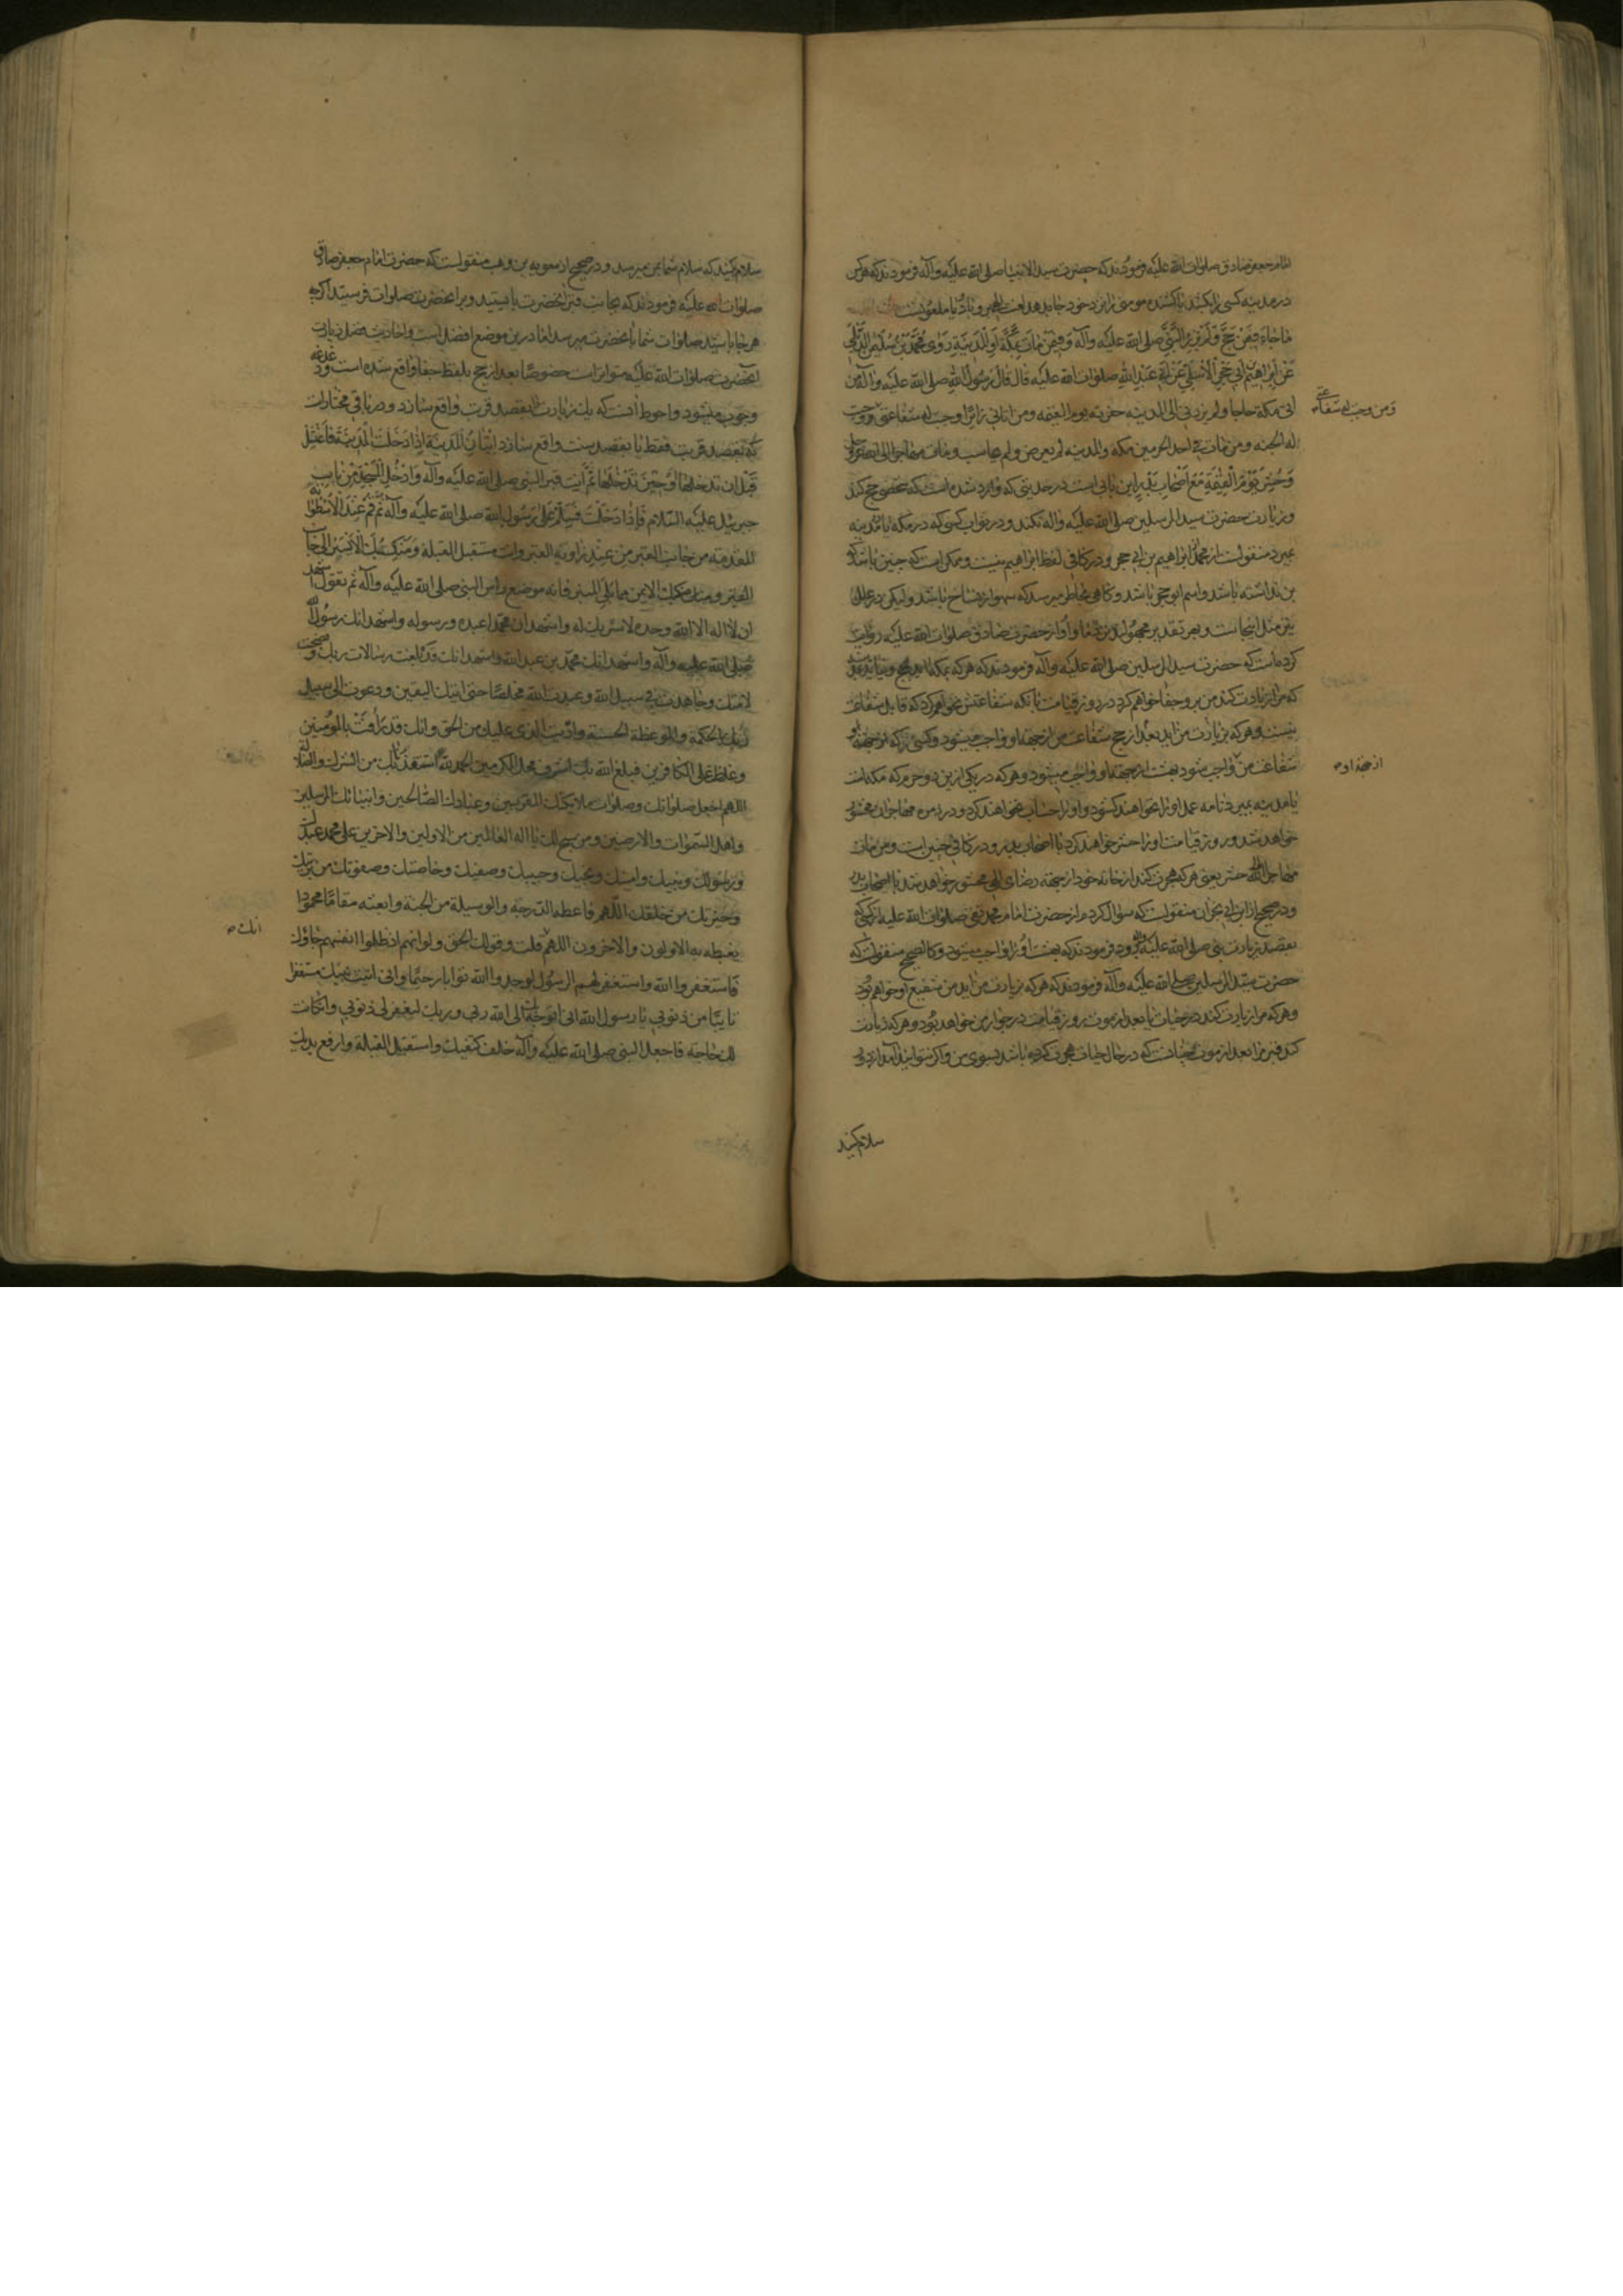 امام جعفر صادق صلوات الله علیه فرمودند که حضرت سید الانبیا صلی الله علیه وآله فرمودند که هر کس
در مدینه کسی را بکشد یا کشنده مومنی را نزد خود جا بدهد لعنت الهی بر و باد یا ملعونست
ما جاء فیمن حج ولم یزر النبی صلی الله علیه وآله وفیمن مات بمکة او المدینة روی محمد بن سلیمن الدیلمی
عن ابراهیم بن ابی حجر الاسلمی عن ابی عبد الله صلوات الله علیه قال قال رسول الله صلی الله علیه وآله من
اتی مکة حاجا ولم یزرنی الی المدینه جفوته یوم القیمه ومن اتانی زائرا وجبت له شفاعتی ووجبت
ومن وجبت له شفاعتی
له الجنه ومن مات فی احد الحرمین مکه والمدینه لم یعرض ولم یحاسب ومات مهاجرا الی الله عز وجل
وحشر یوم القیمة مع اصحاب بدر این بابی است در حدیثی که وارد شده است که شخصی حج کند
وزیارت حضرت سید المرسلین صلی الله علیه واله نکند و در ثواب کسی که در مکه یا مدینه
بمیرد منقولست از محمد از ابراهیم بن ابی حجر و در کافی لفظ ابراهیم نیست و ممکن است که چنین باشد که
بن نداشته باشد و اسم ابو حجر باشد و گاهی بخاطر میرسد که سهو از نساخ باشد ولیکن در علل
نیز مثل اینجاست و بهر تقدیر مجهولند و او از حضرت صادق صلوات الله علیه روایت
کرده است که حضرت سید المرسلین صلی الله علیه وآله فرمودند که هر که بمکه آید بحج و نیاید بمدینه
که مرا زیارت کند من برو جفا خواهم کرد در روز قیامت یا نکه شفاعتش نخواهم کرد که قابل شفاعت
نیست و هر که بزیارت من آید بعد از حج شفاعت من از جهة او واجب میشود و کسی را که از جهة او
شفاعت من واجب شود بهشت از جهة او واجب میشود و هر که در یکی از این دو حرم که مکه است
از جهة او
یا مدینه بمیرد نامه عمل او را نخواهند گشود و او را حساب نخواهند کرد و در زمره مهاجران محشور
خواهد شد و روز قیامت او را حشر خواهند کرد با اصحاب بدر و در کافی چنین است ومن مات
مهاجرا الی الله حشر یعنی هر که هجرت کند از خانه خود از جهة رضای الهی محشور خواهد شد با اصحاب بدر
و در صحیح از ابن ابی نجران منقولست که سوال کردم از حضرت امام محمد تقی صلوات الله علیه از کسی که
بقصد زیارت نبی صلی الله علیه وآله برود فرمودند که بهشت او را واجب میشود و کالصحیح منقولست که
حضرت سید المرسلین صلی الله علیه وآله فرمودند که هر که زیارت من آید من شفیع او خواهم بود
و هر که مرا زیارت کند در حیات یا بعد از موت روز قیامت در جوار من خواهد بود و هر که زیارت
کند قبر مرا بعد از موت چنانست که در حال حیات هجرت کرده باشد بسوی من و اگر نتوانید آمد از دور
سلام کنید
سلام کنید که سلام شما بمن میرسد و در صحیح از معویه بن وهب منقولست که حضرت امام جعفر صادق
صلوات الله علیه فرمودند که بجانب قبر آنحضرت بایستید و بر آنحضرت صلوات فرستید اگرچه
هر جا باشید صلوات شما بآنحضرت میرسد اما درین موضع افضل است و احادیث فضل زیارت
آنحضرت صلوات الله علیه متواتر است خصوصا بعد از حج بلفظ جفا واقع شده است و دغدغه
وجوب میشود و احوط آنست که یک زیارت بقصد قربت واقع سازد و در باقی مختار است
که بقصد قربت فقط یا بقصد سنت واقع سازد اتیان المدینة اذا دخلت المدینة فاغتسل
قبل ان تدخلها او حین تدخلها ثم ائت قبر النبی صلی الله علیه وآله وادخل المسجد من باب
جبرئیل علیه السلام فاذا دخلت فسلم علی رسول الله صلی الله علیه وآله ثم قم عند الاسطوانة
المقدمة من جانب القبر من عند زاویه القبر وانت مستقبل القبلة ومنکبک الایسر الی جانب
القبر ومنکبک الایمن مما یلی المنبر فانه موضع راس النبی صلی الله علیه وآله ثم تقول اشهد
ان لا اله الا الله وحده لا شریک له واشهد ان محمدا عبده ورسوله واشهد انک رسول الله
صلی الله علیه وآله واشهد انک محمد بن عبد الله واشهد انک قد بلغت رسالات ربک ونصحت
لامتک وجاهدت فی سبیل الله وعبدت الله مخلصا حتی اتیک الیقین ودعوت الی سبیل
ربک بالحکمة والموعظة الحسنة وادیت الذی علیک من الحق وانک قد رأفت بالمؤمنین
وغلظت علی الکافرین فبلغ الله بک اشرف محل المکرمین الحمد لله استنقذنا بک من الشرک والضلالة
اللهم اجعل صلواتک وصلوات ملائکتک المقربین وعبادک الصالحین وانبیائک المرسلین
واهل السموات والارضین ومن سبح لک یا اله العالمین من الاولین والاخرین علی محمد عبدک
ورسولک ونبیک وامینک ونجیک وحبیبک وصفیک وخاصتک وصفوتک من بریتک
وخیرتک من خلقک اللهم فاعطه الدرجة والوسیلة من الجنة وابعثه مقاما محمودا
یغبطه به الاولون والاخرون اللهم قلت وقولک الحق ولو انهم اذ ظلموا انفسهم جاؤک
انک
فاستغفروا الله واستغفر لهم الرسول لوجدوا الله توابا رحیما وانی اتیت نبیک مستغفرا
تائبا من ذنوبی یا رسول الله انی اتوجه بک الی الله ربی وربک لیغفر لی ذنوبی وان کانت
لک حاجة فاجعل النبی صلی الله علیه وآله خلف کتفیک واستقبل القبلة وارفع یدیک